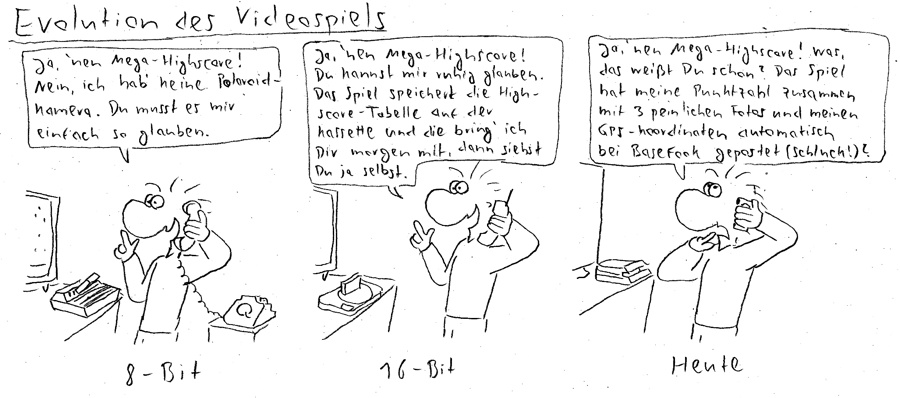 Evolution des Videospiels
Ja, 'nen Mega-Highscore!
Nein, ich hab' keine Polaroid-
kamera. Du musst es mir
einfach so glauben.
Ja, 'nen Mega-Highscore!
Du kannst mir ruhig glauben.
Das Spiel speichert die High-
score-Tabelle auf der
Kassette und die bring' ich
Dir morgen mit, dann siehst
Du ja selbst.
Ja, 'nen Mega-Highscore! Was,
das weißt Du schon? Das Spiel
hat meine Punktzahl zusammen
mit 3 peinlichen Fotos und meinen
GPS-Koordinaten automatisch
bei BaseFook gepostet (schluch!)?
8-Bit
16-Bit
Heute